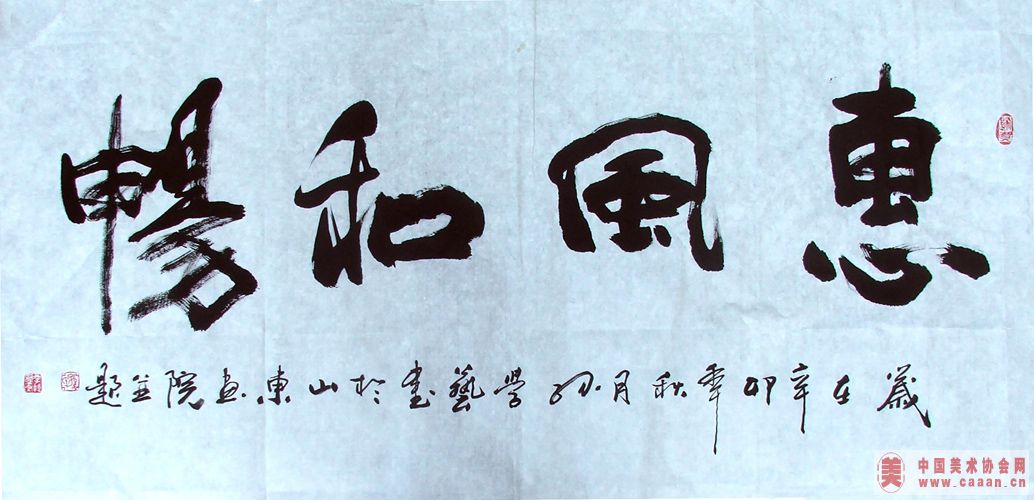 惠風和暢
歲在辛卯年秋月孫學藝書於山東畫院並題
中国美术协会网
www.caaan.cn
美